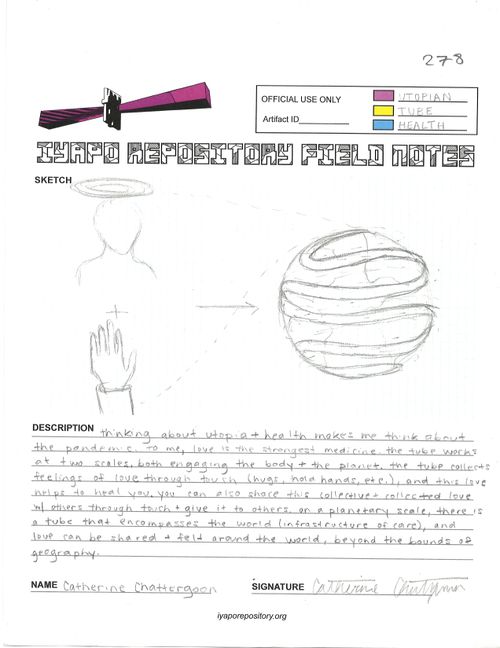 278
OFFICIAL USE ONLY
UTOPIAN
TUBE
Artifact ID
HEALTH
IYAPO REPOSITORY FIELD NOTES
SKETCH
DESCRIPTION thinking about utopia + health makes me think about
the pandemic. to me, love is the strongest medicine. the tube works
at two scales, both engaging the body + the planet. the tube collects
feelings of love through touch (hugs, hold hands, etc.), and this love
helps to heal you. you can also share this collective + collected love
w/ others through touch + give it to others. on a planetary scale, there is
a tube that encompasses the world (infrastructure of care), and
love can be shared + felt around the world, beyond the bounds of
geography.
NAME Catherine Chattergoon SIGNATURE Catherine Chattergoon
iyaporepository.org